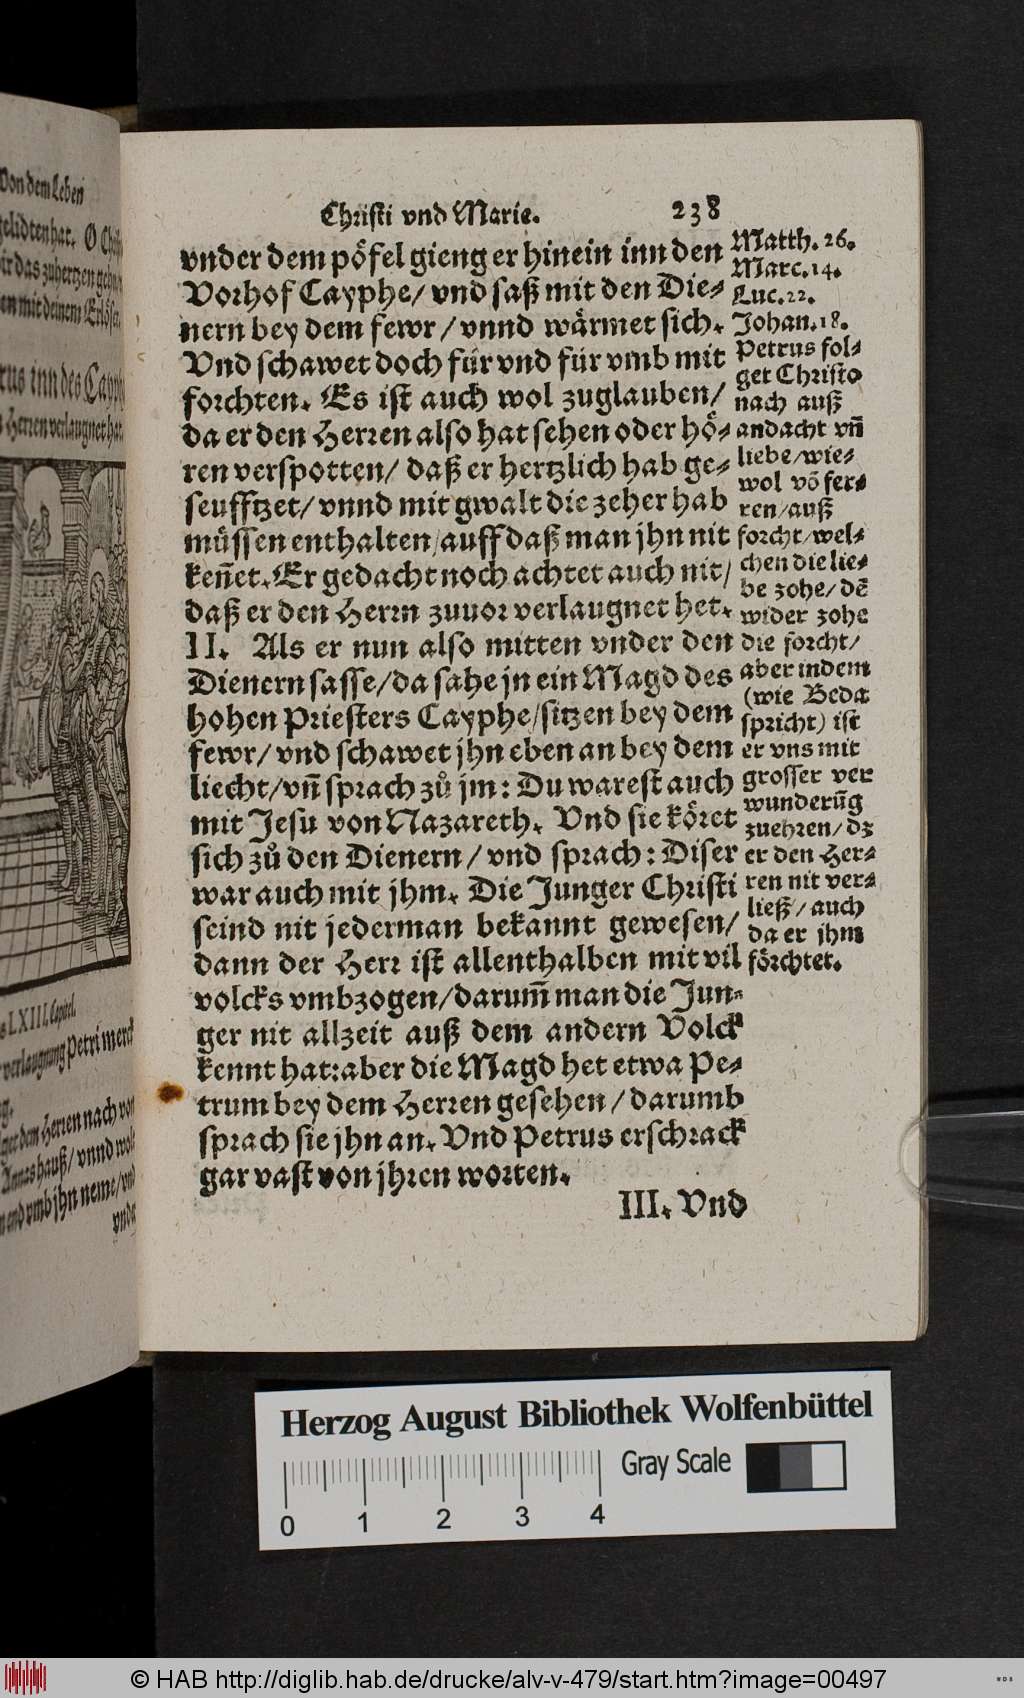 Von dem Leben
Christi vnd Marie. 238
vnder dem pöfel gieng er hinein inn den
Vorhof Cayphe/ vnd saß mit den Die-
nern bey dem fewr/ vnnd wärmet sich.
Vnd schawet doch für vnd für vmb mit
forchten. Es ist auch wol zuglauben/
da er den Herren also hat sehen oder hö-
ren verspotten/ daß er hertzlich hab ge-
seufftzet/ vnnd mit gwalt die zeher hab
müssen enthalten/ auff daß man jhn nit
ken̄et. Er gedacht noch achtet auch nit/
daß er den Herrn zuuor verlaugnet het.
II. Als er nun also mitten vnder den
Dienern sasse/ da sahe jn ein Magd des
hohen Priesters Cayphe/ sitzen bey dem
fewr/ vnd schawet jhn eben an bey dem
liecht/ vn̄ sprach zů jm: Du warest auch
mit Jesu von Nazareth. Vnd sie köret
sich zů den Dienern/ vnd sprach: Diser
war auch mit jhm. Die Junger Christi
seind nit jederman bekannt gewesen/
dann der Herr ist allenthalben mit vil
volcks vmbzogen/ darum̄ man die Jun-
ger nit allzeit auß dem andern Volck
kennt hat: aber die Magd het etwa Pe-
trum bey dem Herren gesehen/ darumb
sprach sie jhn an. Vnd Petrus erschrack
gar vast von jhren worten.
III. Vnd
Matth. 26.
Marc. 14.
Luc. 22.
Johan. 18.
Petrus fol-
get Christo
nach auß
andacht vn̄
liebe/ wie-
wol võ fer-
ren/ auß
forcht/ wel-
chen die lie-
be zohe/ dẽ
wider zohe
die forcht/
aber in dem
(wie Beda
spricht) ist
er vns mit
grosser ver
wunderūg
zuehren/ dz
er den Her-
ren nit ver-
ließ/ auch
da er jhm
förchtet.
Herzog August Bibliothek Wolfenbüttel
Gray Scale
0 1 2 3 4
© HAB http://diglib.hab.de/drucke/alv-v-479/start.htm?image=00497